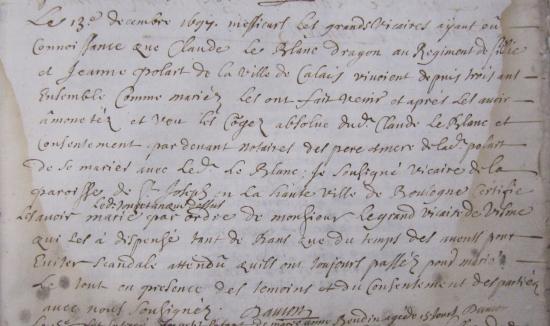 Le 13e decembre 1697 messieurs les grands Vicaires ayant eû
Connoissance que Claude le Blanc dragon au Regiment de
et Jeanne polart de la Ville de Calais vivoient depuis trois ans
Ensemble Comme mariéz les ont fait venir et aprés les avoir
admonetéz et veu les absolue dud. Claude le Blanc et
Consentement par devant notaires des pere et mere de lad. polart
de se marier avec led. le Blanc: je soussigné Vicaire de la
paroisse de St. Joseph en la haute Ville de Boulogne Certifie
le dix sept
les avoir marié par ordre de monsieur le grand Vicaire de
qui les à dispensé tant de bans que du temps des avents pour
Eviter Scandale attendu quils ont toujours passéz pour mariéz
Le tout en presence des temoins et du Consentement des parties
avec nous Soussignéz